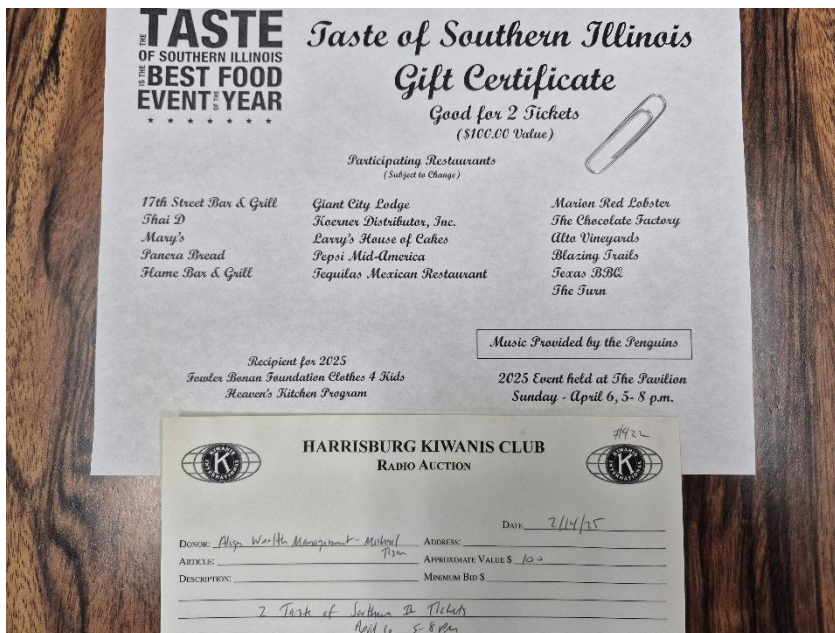 THE TASTE
OF SOUTHERN ILLINOIS
IS THE BEST FOOD
EVENT OF THE YEAR
Taste of Southern Illinois
Gift Certificate
Good for 2 Tickets
($100.00 Value)
Participating Restaurants
(Subject to Change)
17th Street Bar & Grill
Thai D
Mary's
Panera Bread
Flame Bar & Grill
Giant City Lodge
Koerner Distributor, Inc.
Larry's House of Cakes
Pepsi Mid-America
Tequilas Mexican Restaurant
Marion Red Lobster
The Chocolate Factory
Alto Vineyards
Blazing Trails
Texas BBQ
The Turn
Music Provided by the Penguins
Recipient for 2025
Fowler Bonan Foundation Clothes 4 Kids
Heaven's Kitchen Program
2025 Event held at The Pavilion
Sunday - April 6, 5- 8 p.m.
HARRISBURG KIWANIS CLUB
RADIO AUCTION
KIWANIS
K
INTERNATIONAL
KIWANIS
K
INTERNATIONAL
DATE 2/14/25
DONOR: Align Wealth Management - Michael
ADDRESS:
ARTICLE:
APPROXIMATE VALUE $ 100
DESCRIPTION:
MINIMUM BID $
2 Taste of Southern IL Tickets
April 6 5-8pm